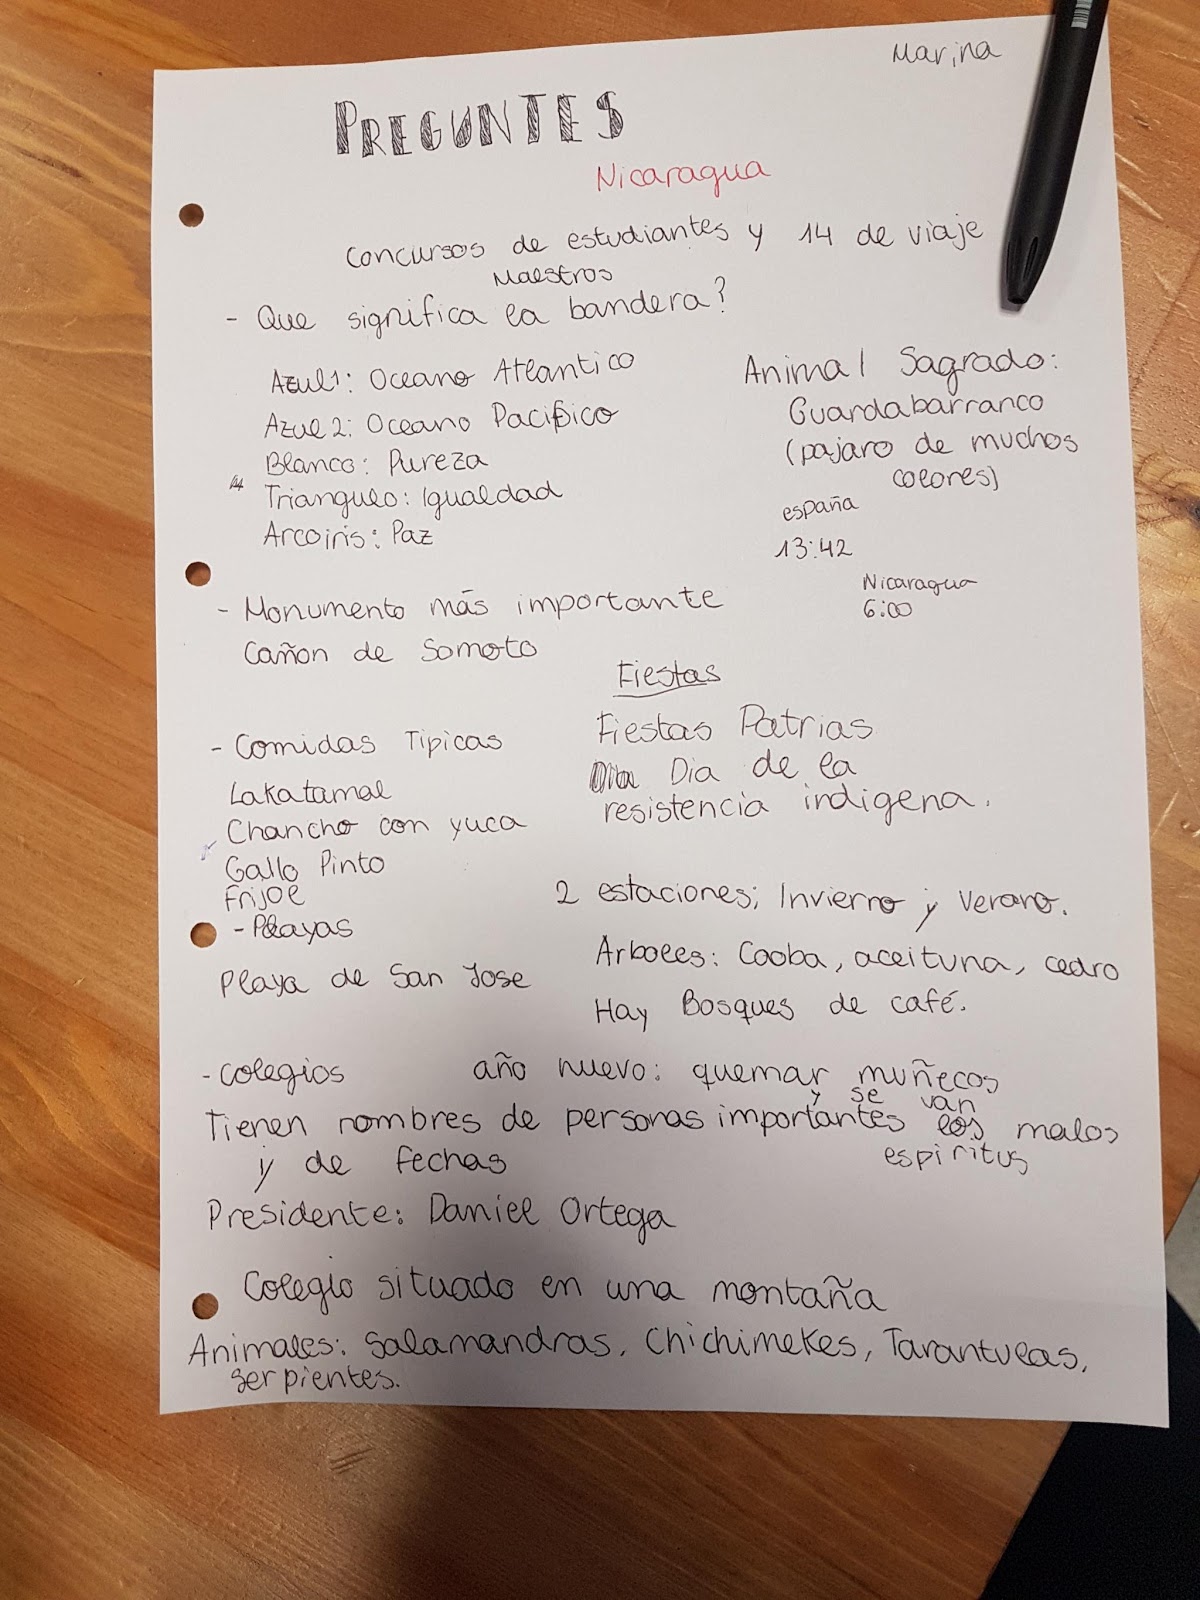 Marina
PREGUNTES
Nicaragua
Concursos de estudiantes y 14 de viaje
Maestros
- Que significa la bandera?
Azul1: Oceano Atlantico
Azul 2: Oceano Pacifico
Blanco: Pureza
Triangulo: Igualdad
Arcoiris: Paz
Animal Sagrado:
Guardabarranco
(pajaro de muchos
colores)
españa
13:42
Nicaragua
6:00
- Monumento más importante
Cañon de Somoto
Fiestas
Fiestas Patrias
Dia de la
resistencia indigena.
- Comidas Tipicas
Lakatamal
Chancho con yuca
Gallo Pinto
Frijol
2 estaciones; Invierno y Verano.
- Playas
Playa de San Jose
Arboles: Caoba, aceituna, cedro
Hay Bosques de café.
- Colegios
año nuevo: quemar muñecos
y se van
los malos
espiritus
Tienen nombres de personas importantes
y de fechas
Presidente: Daniel Ortega
Colegio situado en una montaña
Animales: Salamandras, Chichimekes, Tarantulas,
serpientes.